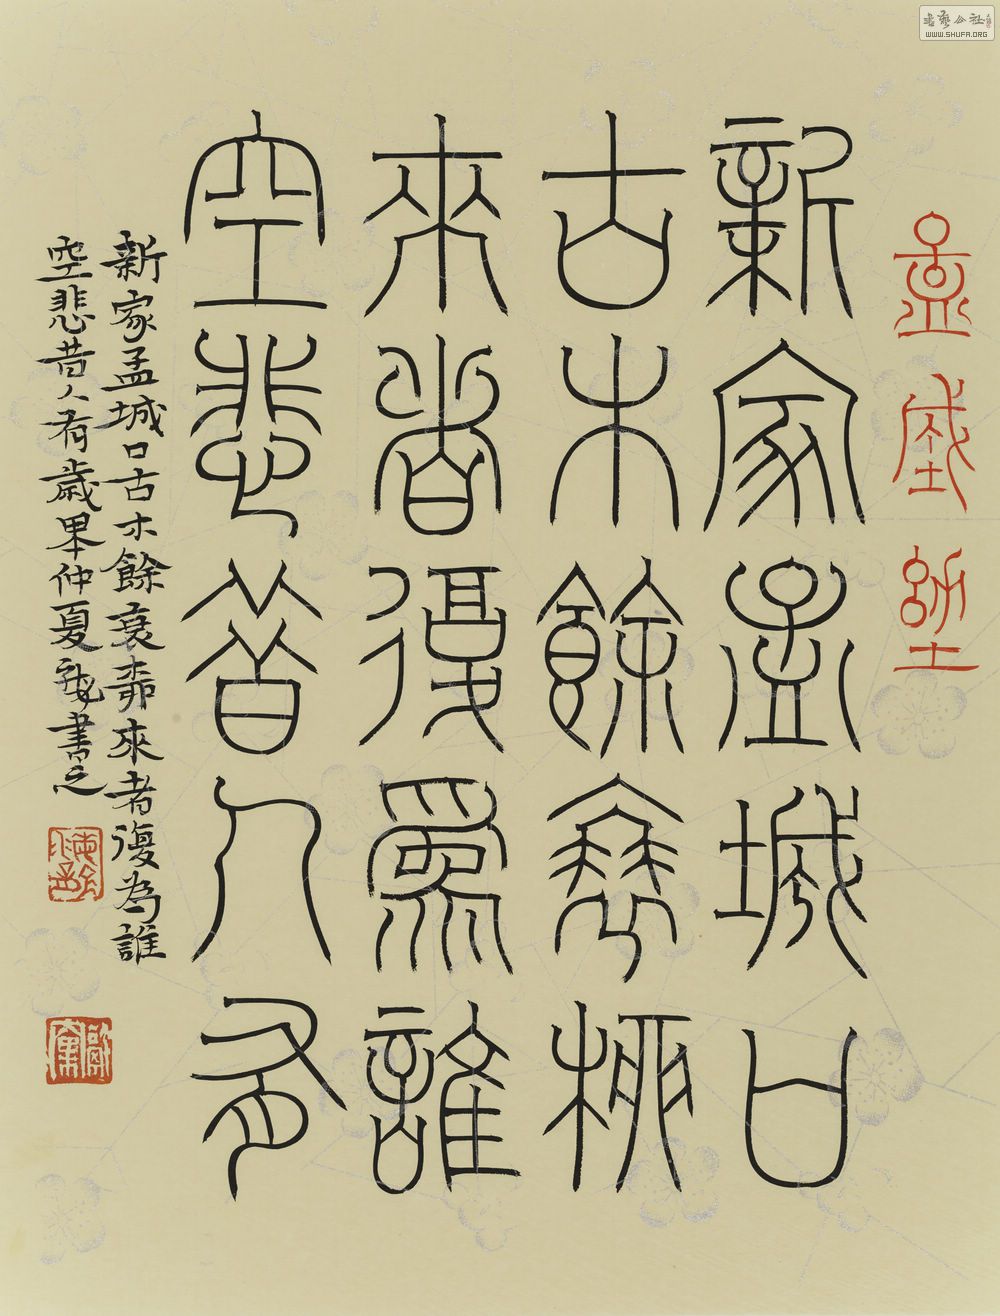 書藝公社
WWW.SHUFA.ORG
孟城坳
新家孟城口
古木餘衰柳
來者復爲誰
空悲昔人有
新家孟城口古木餘衰桺來者復為誰
空悲昔人有歲仲夏書之